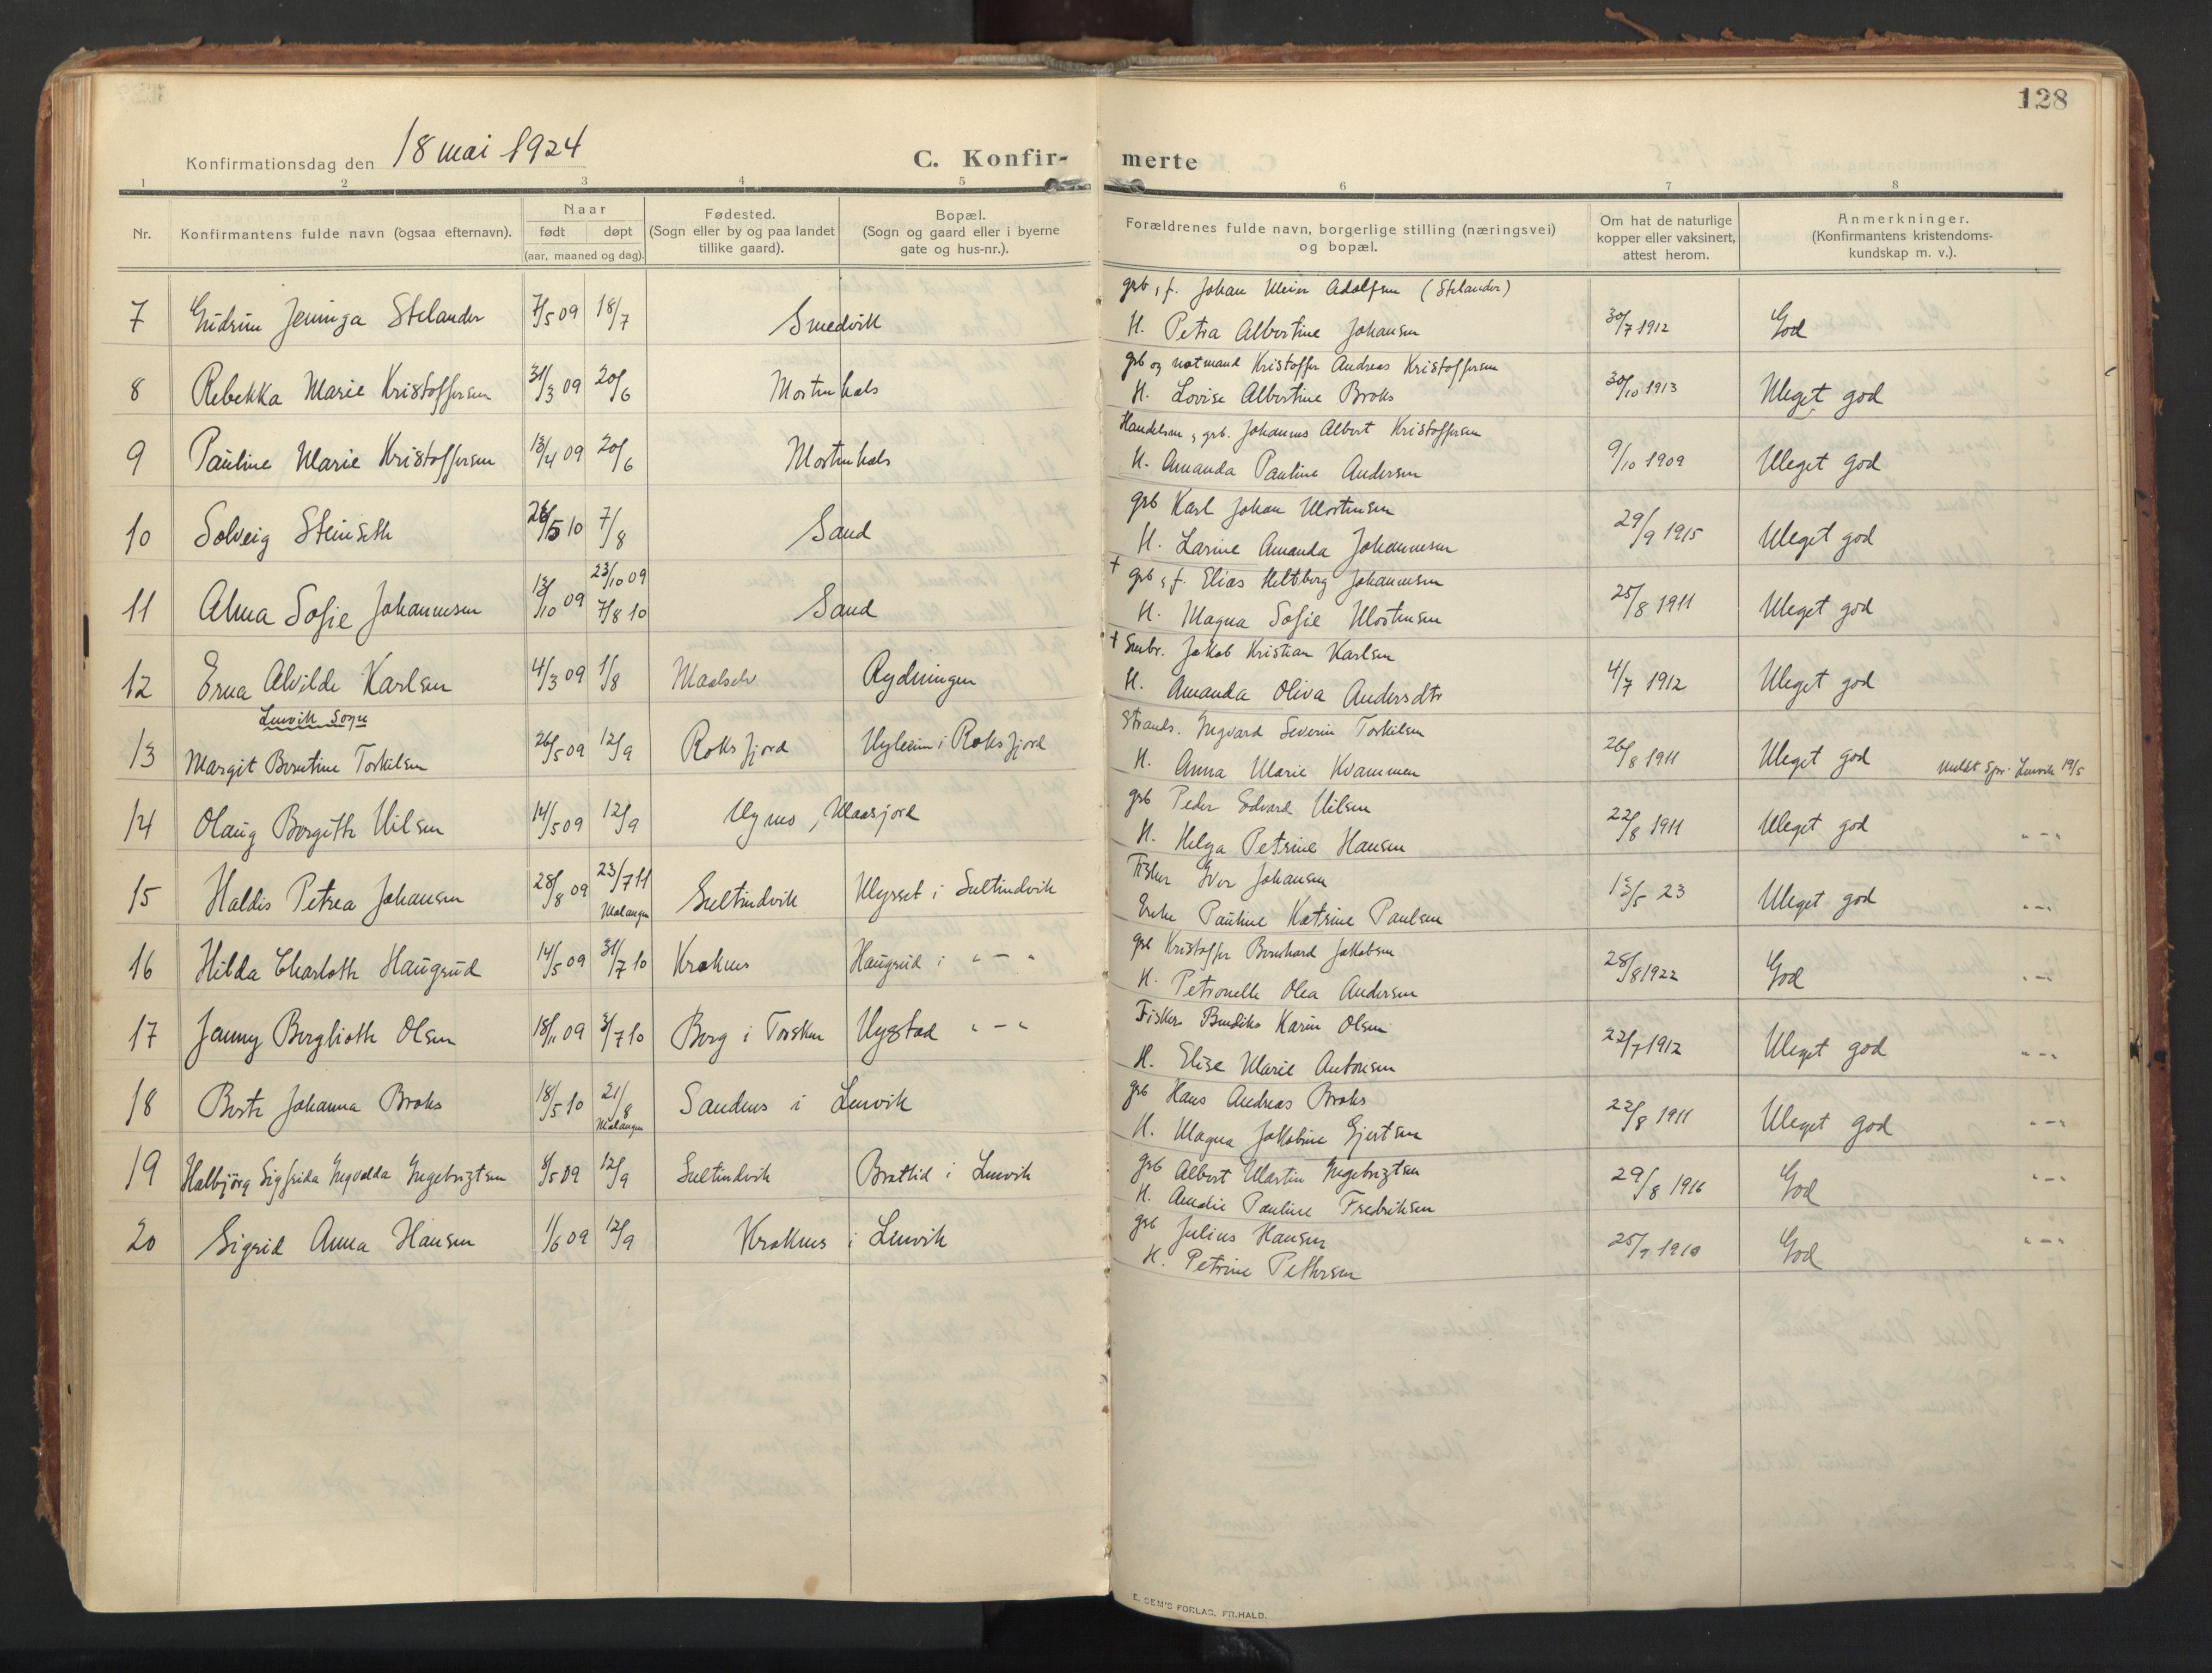 128
Konfirmationsdag den 18 mai 1924
C. Konfir- merte
1 2 3 4 5 6 7 8
Nr. Konfirmantens fulde navn (ogsaa efternavn). Naar født døpt (aar, maaned og dag). Fødested. (Sogn eller by og paa landet tillike gaard). Bopæl. (Sogn og gaard eller i byerne gate og hus-nr.). Forældrenes fulde navn, borgerlige stilling (næringsvei) og bopæl. Om hat de naturlige kopper eller vaksinert, attest herom. Anmerkninger. (Konfirmantens kristendoms- kundskap m. v.).
grb, f. Johan Meier Adolfsen (Stelander)
7 Gudrun Jenninga Stelander 7/5 09 18/7 Smedvik H. Petra Albertine Johansen 30/7 1912 God
grb og notmand Kristoffer Andreas Kristoffersen
8 Rebekka Marie Kristoffersen 31/3 09 20/6 Mortenhals H. Lovise Albertine Broks 30/10 1913 Meget god
Handelsm, grb. Johannes Albert Kristoffersen
9 Pauline Marie Kristoffersen 13/4 09 20/6 Mortenhals H. Amanda Pauline Andersen 9/10 1909 Meget god
grb Karl Johan Mortensen
10 Solveig Steinseth 26/5 10 7/8 Sand H. Larine Amanda Johannesen 29/9 1915 Meget god
† grb, f. Elias Heltberg Johannesen
11 Alma Sofie Johannesen 13/10 09 23/10 09 7/8 10 Sand H. Magna Sofie Mortensen 25/8 1911 Meget god
† Smbr. Jakob Kristian Karlsen
12 Erna Alvilde Karlsen 4/3 09 1/8 Maalselv Rydningen H. Amanda Oliva Andersdtr 4/7 1912 Meget god
Lenvik Sogn
Strands. Ingvard Severin Torkilsen
13 Margit Berntine Torkilsen 26/5 09 12/9 Roksfjord Nyheim i Roksfjord H. Anna Marie Kvammen 26/8 1911 Meget god Meldt Spr. Lenvik 19/5
grb Peder Edvard Nilsen
14 Olaug Borgith Nilsen 14/5 09 12/9 Nymo, Maasjord H. Helga Petrine Hansen 22/8 1911 Meget god " - "
Fisker Iver Johansen
15 Haldis Petrea Johansen 28/8 09 23/7 11 Malangen Sultindvik Nyset i Sultindvik Enke Pauline Katrine Paulsen 13/5 23 Meget god " - "
grb Kristoffer Bernhard Jakobsen
16 Hilda Charloth Haugsud 14/5 09 31/7 10 Kraknes Haugsud i " - " H. Petronelle Olea Andersen 28/8 1922 God " - "
Fisker Bendiks Karin Olsen
17 Jenny Berglioth Olsen 18/11 09 3/7 10 Berg i Torsken Nystad " - " H. Elise Marie Antonsen 22/7 1912 Meget god " - "
grb Hans Andreas Broks
18 Berte Johanna Broks 18/5 10 21/8 Malangen Sandnes i Lenvik H. Magna Jakobine Gjertsen 22/8 1911 Meget god " - "
grb Albert Martin Ingebrigtsen
19 Halbjörg Sigfrida Ingvalda Ingebrigtsen 8/5 09 12/9 Sultindvik Brattlid i Lenvik H. Amalie Pauline Fredriksen 29/8 1916 God " - "
grb Julius Hansen
20 Sigrid Anna Hansen 1/6 09 12/9 Kraknes i Lenvik H. Petrine Pettersen 25/9 1910 God " - "
E. SEM'S FORLAG, FR.HALD.